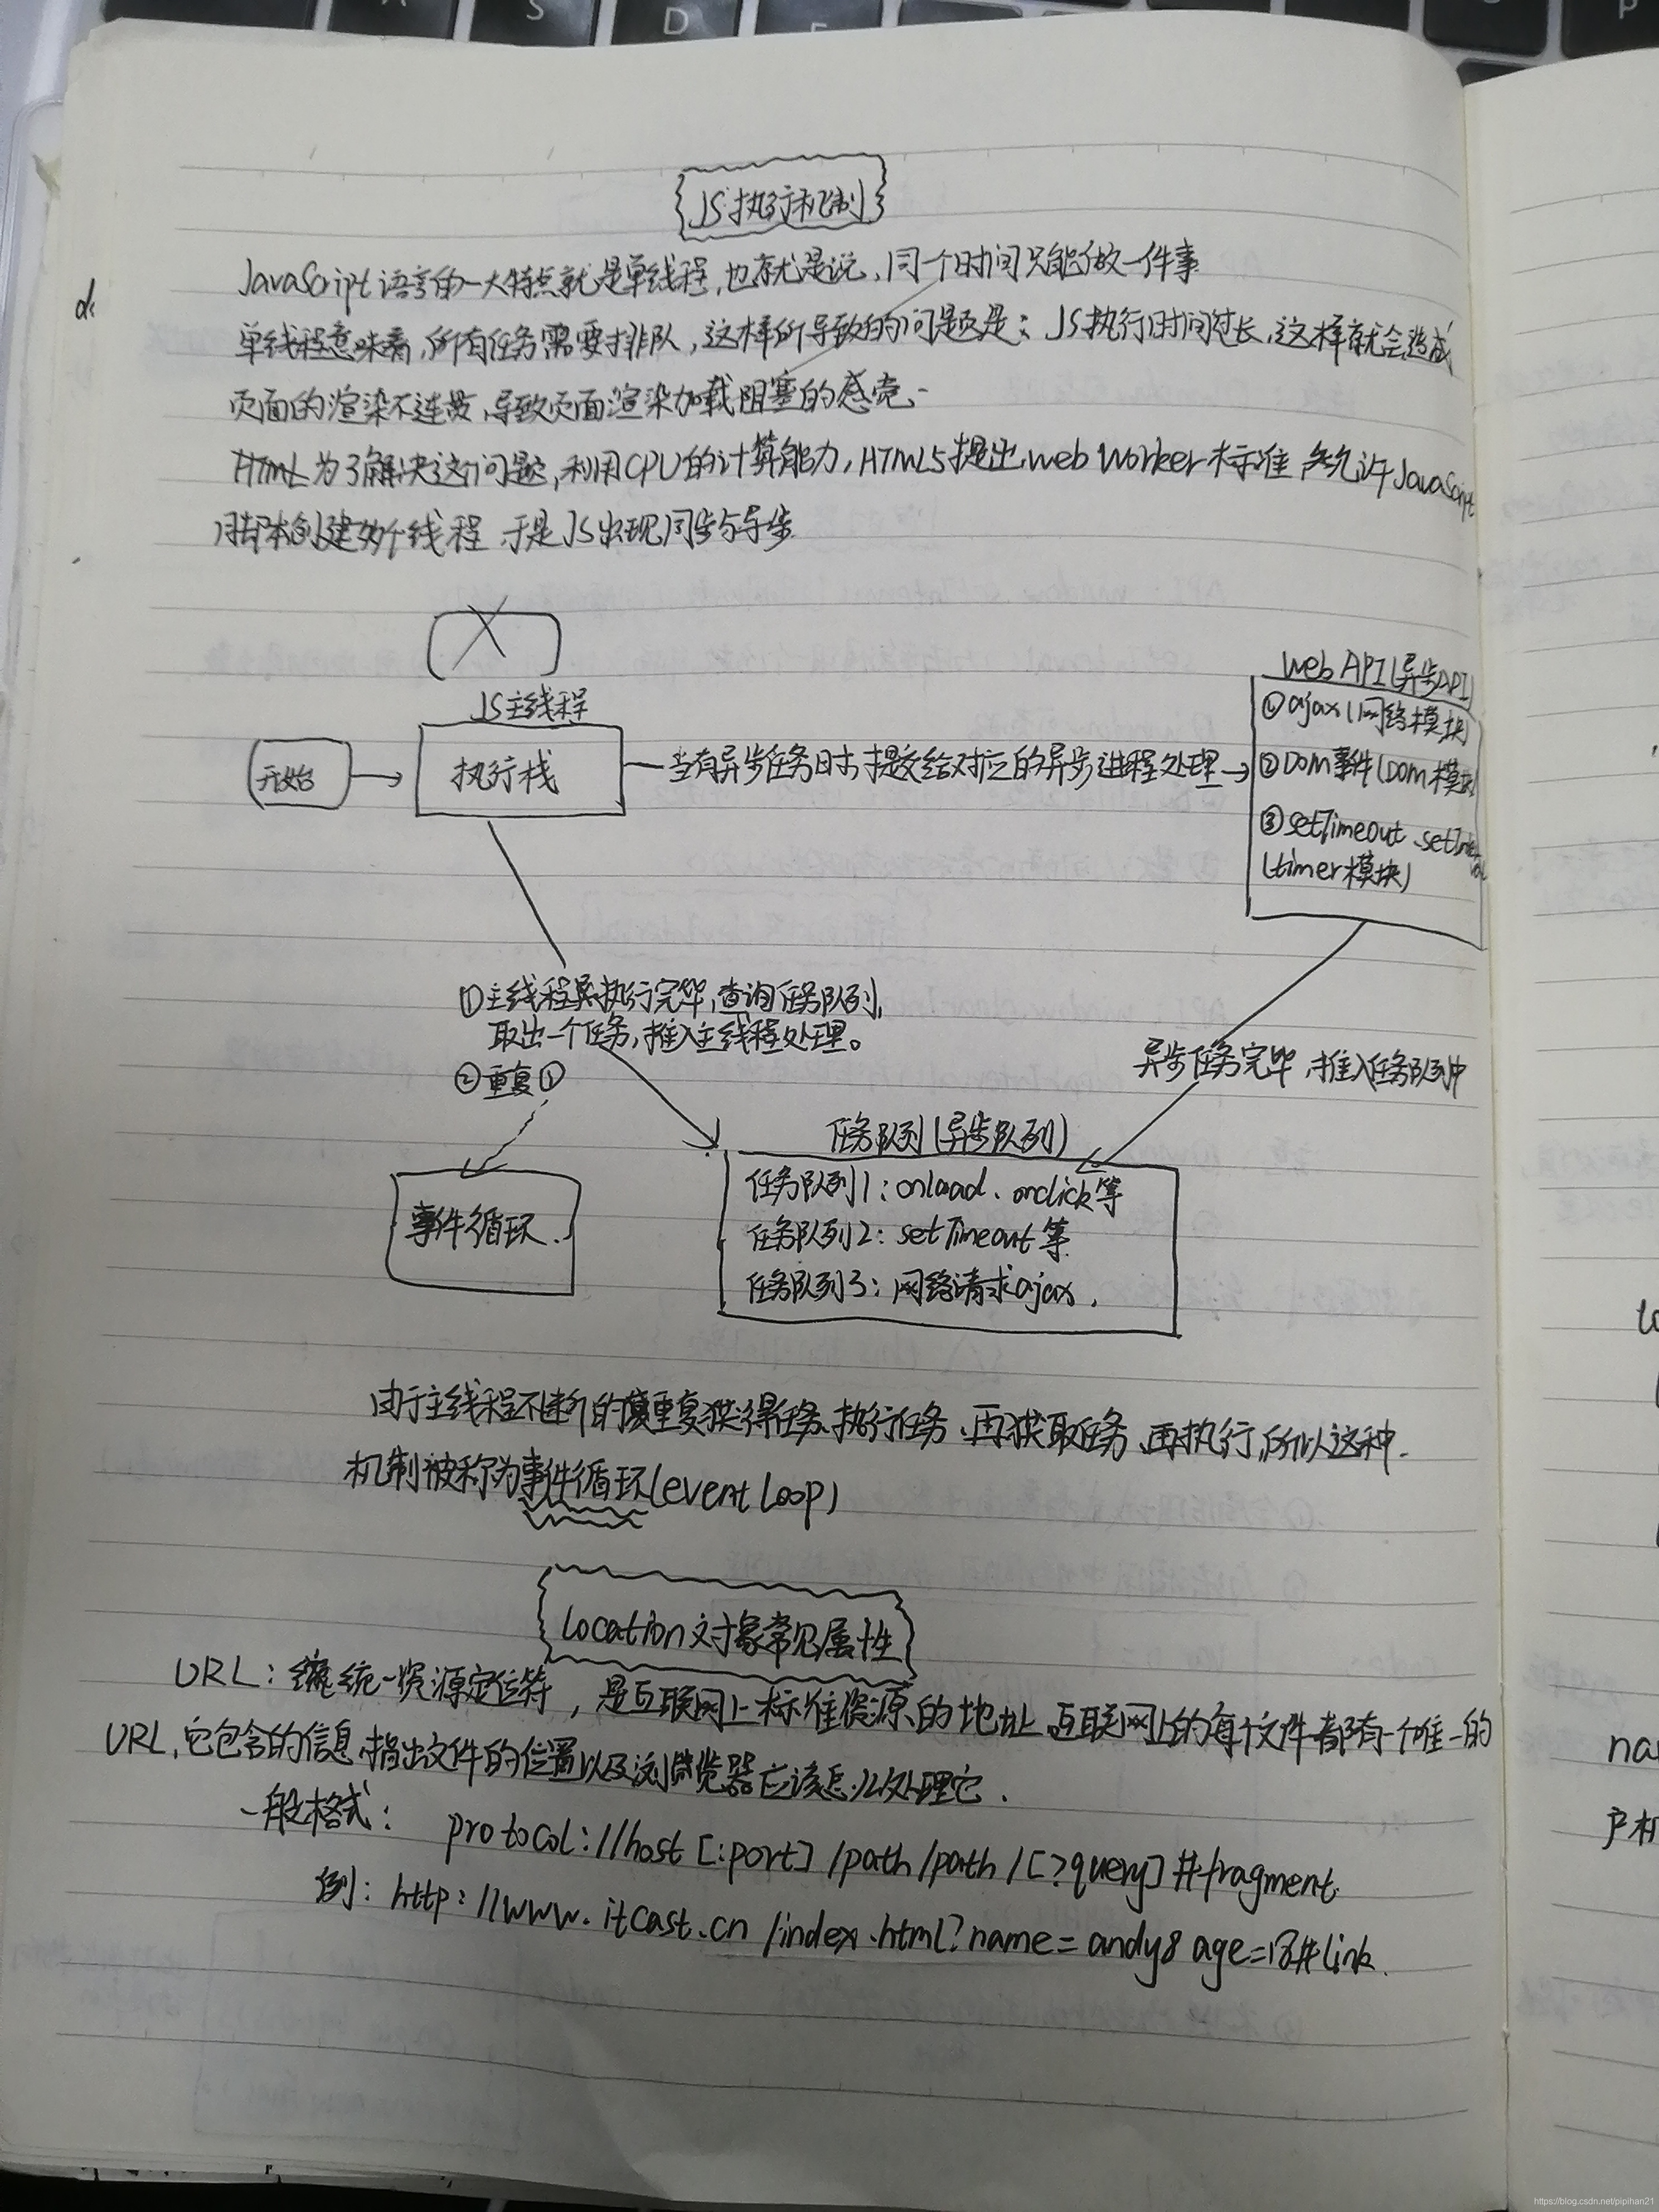 JS执行机制
JavaScript语言的一大特点就是单线程,也就是说,同个时间只能做一件事
单线程意味着,所有任务需要排队,这样所导致的问题是:JS执行时间过长,这样就会造成
页面的渲染不连贯,导致页面渲染加载阻塞的感觉、
为了解决这个问题,利用CPU的计算能力,HTML5提出web Worker标准,允许JavaScript
脚本创建多个线程,于是JS出现同步与异步
JS主线程
Web API(异步API)
开始
执行栈
当有异步任务时提交给对应的异步进程处理
①ajax(网络模块)
②DOM事件(DOM模块
③setTimeout、setInterval
(timer模块)
①主线程执行完毕,查询任务队列,
取出一个任务,推入主线程处理。
②重复①
异步任务完毕,推入任务队列中
事件循环.
任务队列(异步队列)
任务队列1:onload、onclick等
任务队列2:setTimeout等
任务队列3:网络请求ajax.
由于主线程不断的重复获得任务、执行任务、再获取任务、再执行,所以这种
机制被称为事件循环(event Loop)
Location对象常见属性
URL:统一资源定位符,是互联网上标准资源的地址,互联网上的每个文件都有一个唯一的
URL,它包含的信息指出文件的位置以及浏览器应该怎么处理它.
一般格式: protocol://host[:port]/path/path/[?query]#fragment
例:http://www.itcast.cn/index.html?name=andy&age=18#link.
na
户机
https://blog.csdn.net/pipihan21